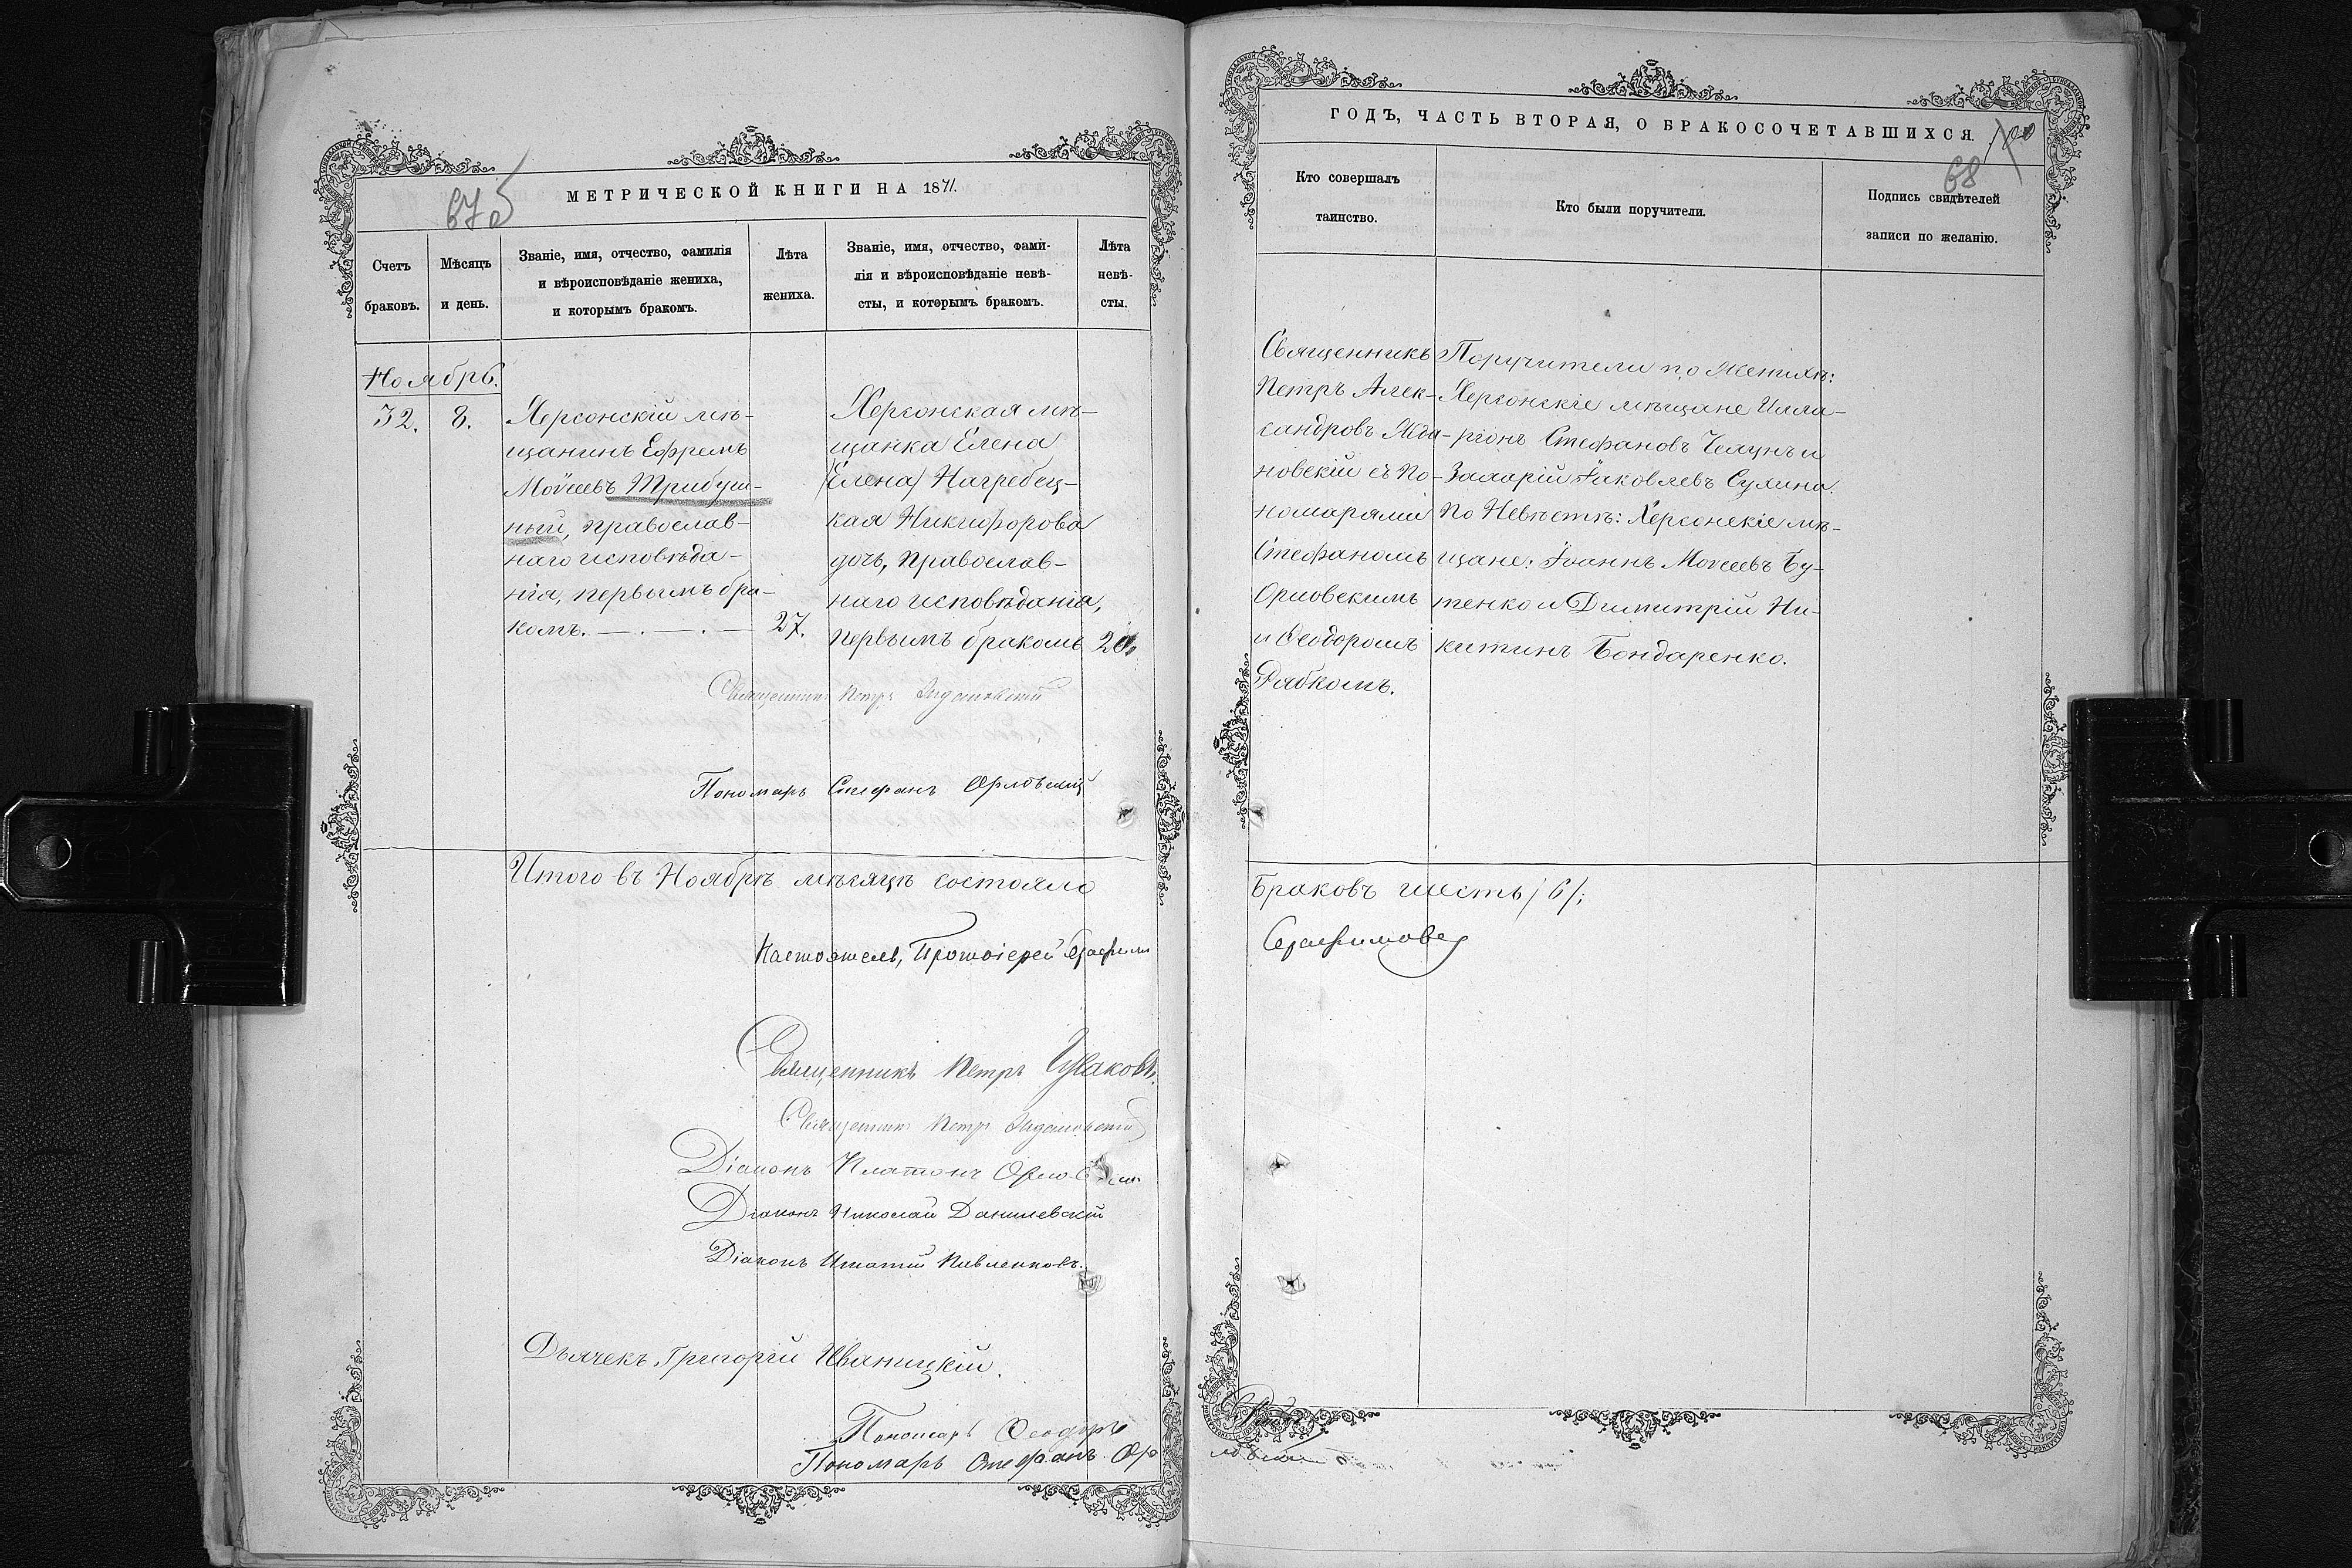 МЕТРИЧЕСКОЙ КНИГИ НА 1871.
67 об
Счетъ браковъ.
Мѣсяцъ и день.
Званіе, имя, отчество, фамилія
и вѣроисповѣданіе жениха,
и которымъ бракомъ.
Лѣта жениха.
Званіе, имя, отчество, фами-
лія и вѣроисповѣданіе невѣ-
сты, и которымъ бракомъ.
Лѣта
невѣ-
сты.
Ноябрь.
32.
8.
Херсонскій мѣ-
щанинъ Ефремъ
Моѵсеевъ Трибуш-
ный, православ-
наго исповѣда-
нія, первымъ бра-
комъ.
27.
Херсонская мѣ-
щанка Елена
(Елена) Нагребец-
кая Никифорова
дочь, православ-
наго исповѣданія,
первымъ бракомъ
20.
Священникъ Петръ
Пономарь Стефанъ Орловскій
Итого въ Ноябрѣ мѣсяцѣ состояло
Настоятель, Протоіерей
Священникъ Петръ
Священникъ Петръ
Діаконъ Платонъ
Діаконъ Николай Данилевскій
Діаконъ Игнатій Павленковъ.
Дьячекъ Григорій Иваницкій.
Пономарь Ѳеодоръ
Пономарь Стефанъ Ор
ГОДЪ, ЧАСТЬ ВТОРАЯ, О БРАКОСОЧЕТАВШИХСЯ.
68
Кто совершалъ
таинство.
Кто были поручители.
Подпись свидѣтелей
записи по желанію.
Священникъ
Петръ Алек-
сандровъ Жда-
новскій съ По-
номарями
Стефаномъ
Орловскимъ
и Ѳеодоромъ
Рябкомъ.
Поручители по Женихѣ:
Херсонскіе мѣщане Илла-
ріонъ Стефановъ и
Захарій Іаковлевъ Сухина.
По Невѣстѣ: Херсонскіе мѣ-
щане: Іоаннъ Моѵсеевъ Бу-
тенко и Димитрій Ни-
китинъ Бондаренко.
Браковъ шесть /6/;
Серафимовъ
ловскій